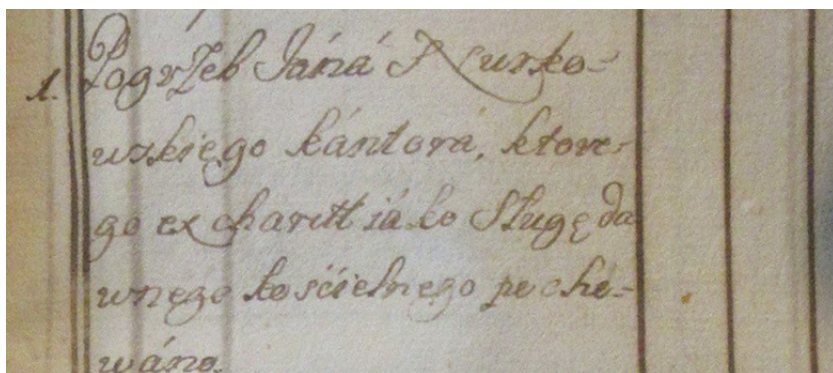 1. Pogrzeb Jáná Kurko-
wskiego kántorá, ktore-
go ex charitt iáko Sługę da
wnego kośćielnego pocho-
wáno.